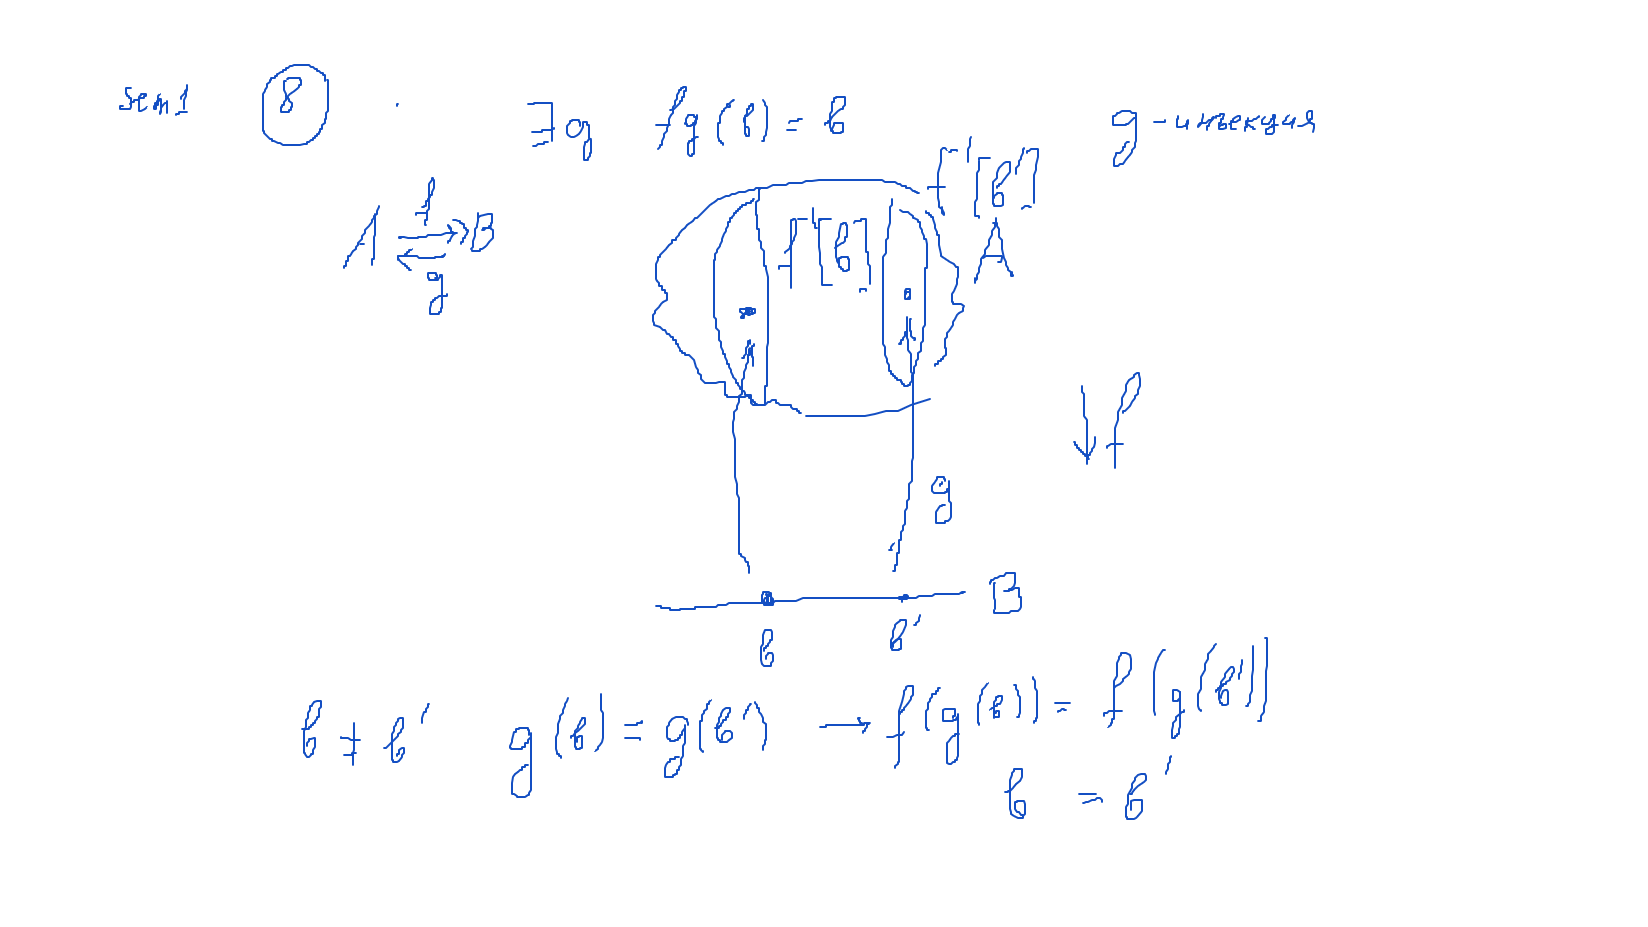 Sem1 8 ∃g fg(b) = b g - инъекция
f⁻¹[b']
A f ↠ B
← g
f⁻¹[b]
A
f
g
B
b b'
b ≠ b' g(b) = g(b') → f(g(b)) = f(g(b'))
b = b'